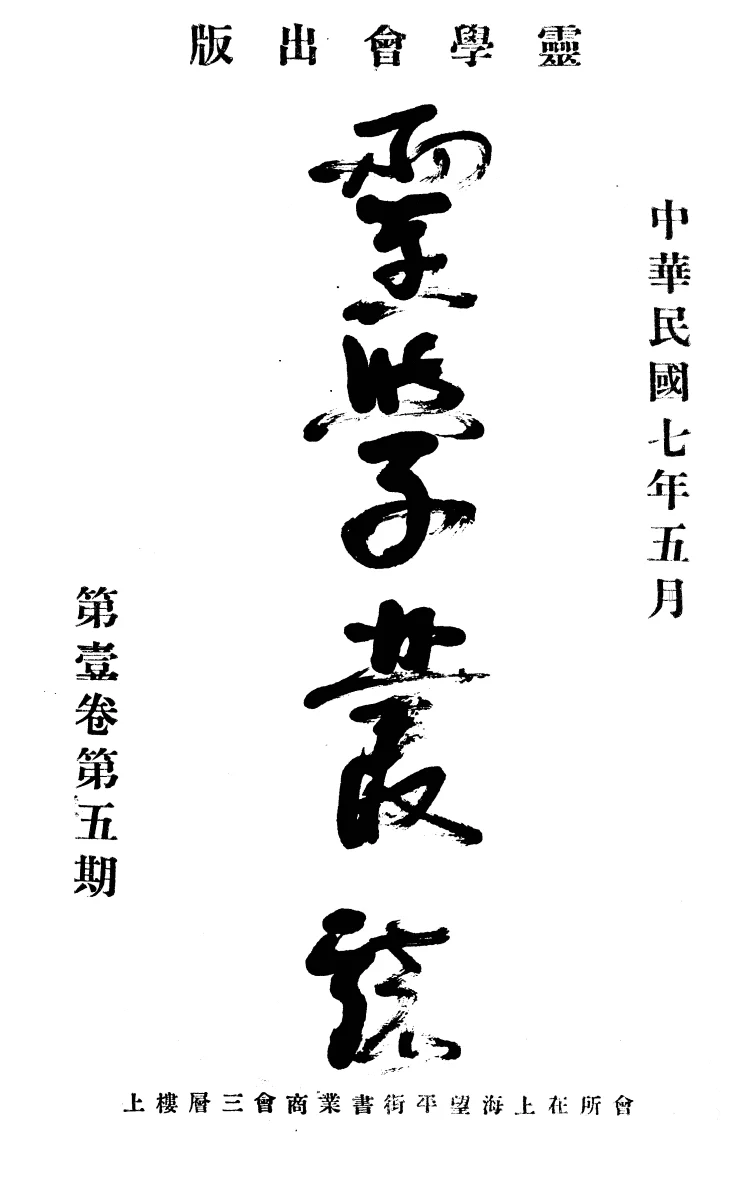 靈學會出版
中華民國七年五月
靈學叢誌
第壹卷第五期
會所在上海望平街書業商會三層樓上